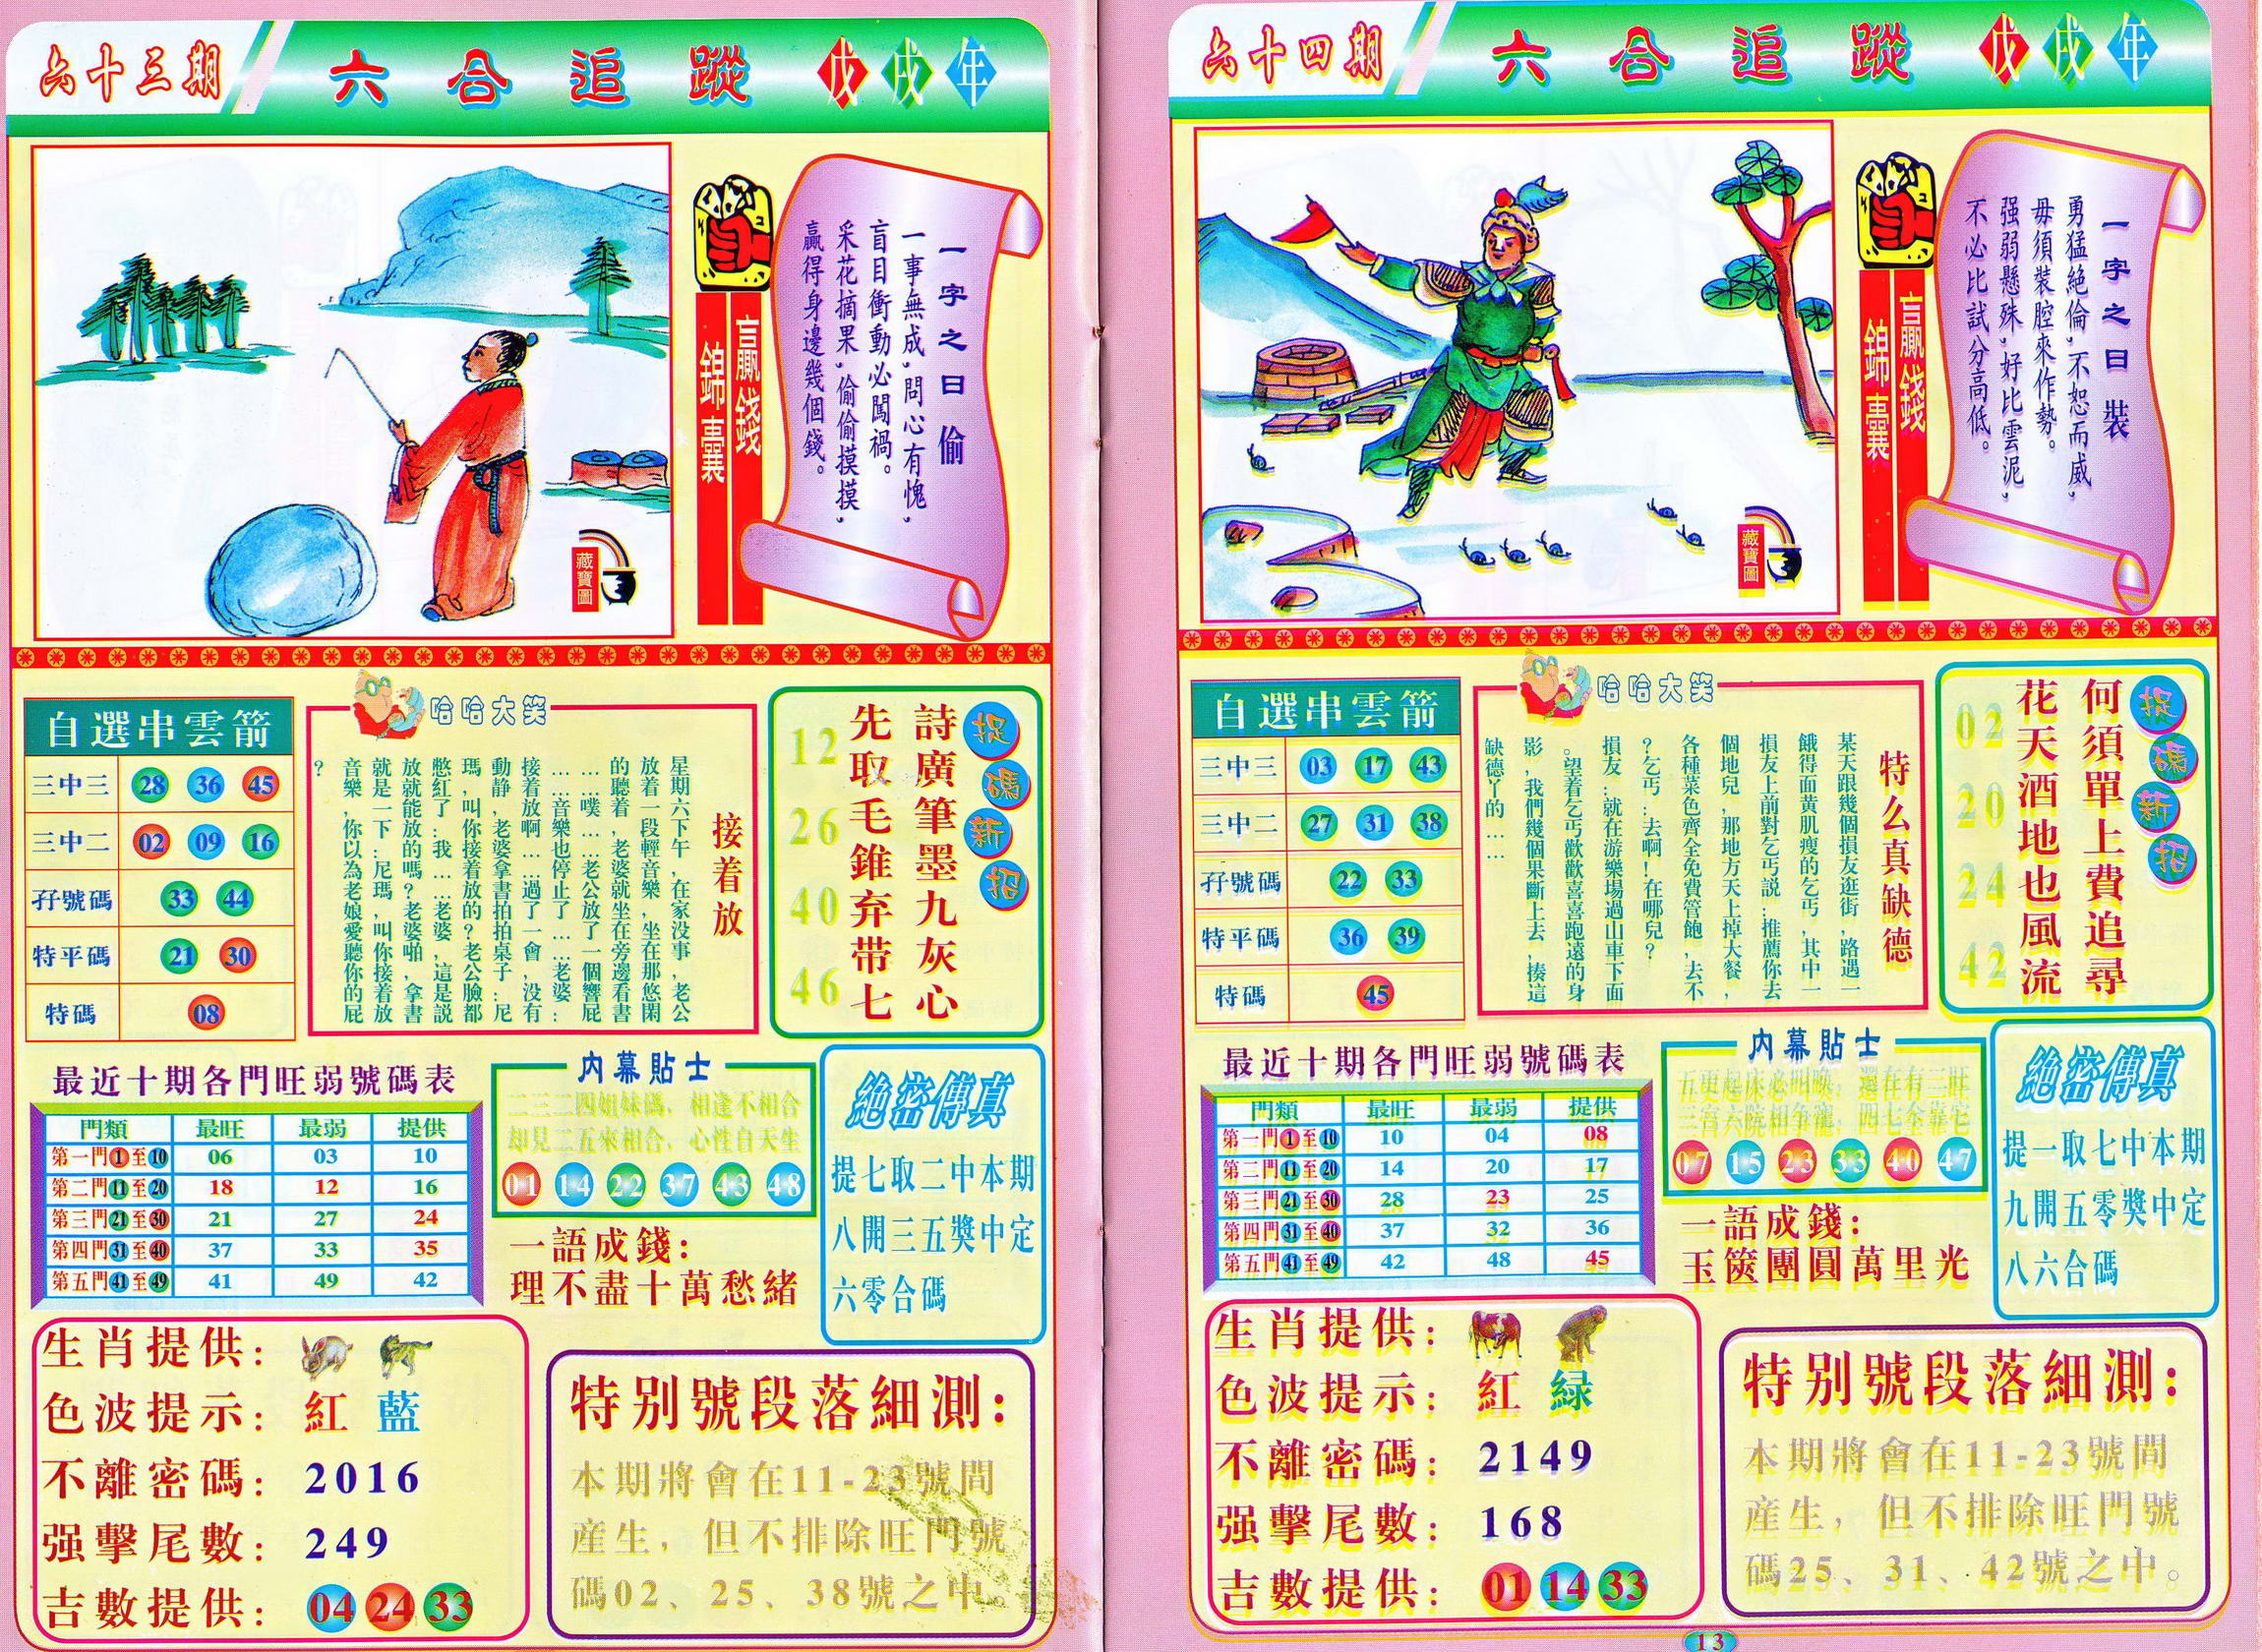 六十三期
六合追蹤
戊戌年
藏寶圖
贏錢
錦囊
一字之曰偷
一事無成，問心有愧，
盲目衝動必闖禍。
采花摘果，偷偷摸摸，
贏得身邊幾個錢。
自選串雲箭
三中三 28 36 45
三中二 02 09 16
孖號碼 33 44
特平碼 21 30
特碼 08
哈哈大笑
接着放
星期六下午，在家没事，老公
放着一段輕音樂，坐在那悠閑
的聽着，老婆就坐在旁邊看書
……噗……老公放了一個響屁
……音樂也停止了……老婆：
接着放啊……過了一會，没有
動静，老婆拿書拍拍桌子：尼
瑪，叫你接着放的？老公臉都
憋紅了：我……老婆，這是説
放就能放的嗎？老婆啪，拿書
就是一下：尼瑪，叫你接着放
音樂，你以為老娘愛聽你的屁
？
捉碼新招
詩廣筆墨九灰心
先取毛錐弃带七
12
26
40
46
最近十期各門旺弱號碼表
門類 最旺 最弱 提供
第一門1至10 06 03 10
第二門11至20 18 12 16
第三門21至30 21 27 24
第四門31至40 37 33 35
第五門41至49 41 49 42
内幕貼士
二三二四姐妹碼，相逢不相合
却見二五來相合，心性自天生
01 14 22 37 43 48
一語成錢：
理不盡十萬愁緒
絶密傳真
提七取二中本期
八開三五獎中定
六零合碼
生肖提供：
色波提示： 紅 藍
不離密碼： 2016
强擊尾數： 249
吉數提供： 04 24 33
特别號段落細測：
本期將會在11-23號間
産生，但不排除旺門號
碼02、25、38號之中。
六十四期
六合追蹤
戊戌年
藏寶圖
贏錢
錦囊
一字之曰裝
勇猛絶倫，不恕而威，
毋須裝腔來作勢。
强弱懸殊，好比雲泥，
不必比試分高低。
自選串雲箭
三中三 03 17 43
三中二 27 31 38
孖號碼 22 33
特平碼 36 39
特碼 45
哈哈大笑
特么真缺德
某天跟幾個損友逛街，路遇一
餓得面黄肌瘦的乞丐，其中一
損友上前對乞丐説：推薦你去
個地兒，那地方天上掉大餐，
各種菜色齊全免費管飽，去不
？乞丐：去啊！在哪兒？
損友：就在游樂場過山車下面
。望着乞丐歡歡喜喜跑遠的身
影，我們幾個果斷上去，揍這
缺德丫的……
捉碼新招
何須單上費追尋
花天酒地也風流
02
20
24
42
最近十期各門旺弱號碼表
門類 最旺 最弱 提供
第一門1至10 10 04 08
第二門11至20 14 20 17
第三門21至30 28 23 25
第四門31至40 37 32 36
第五門41至49 42 48 45
内幕貼士
五更起床必叫唤，還在有三旺
三宫六院相争寵，四七全靠它
07 15 23 33 40 47
一語成錢：
玉篋團圓萬里光
絶密傳真
提一取七中本期
九開五零獎中定
八六合碼
生肖提供：
色波提示： 紅 緑
不離密碼： 2149
强擊尾數： 168
吉數提供： 01 14 33
特别號段落細測：
本期將會在11-23號間
産生，但不排除旺門號
碼25、31、42號之中。
13